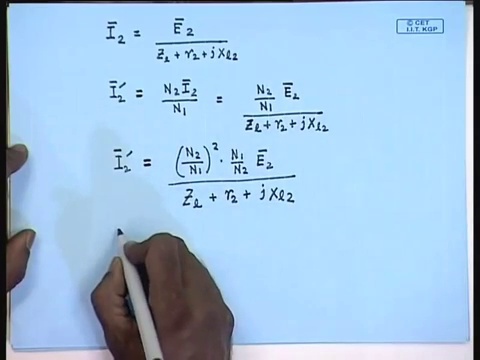 © CET
I.I.T. KGP
Ī₂ = Ē₂ / (Z_l + r₂ + jx_l2)
Ī₂′ = N₂Ī₂ / N₁ = (N₂/N₁) Ē₂ / (Z_l + r₂ + jx_l2)
Ī₂′ = (N₂/N₁)² · (N₁/N₂) Ē₂ / (Z_l + r₂ + jx_l2)